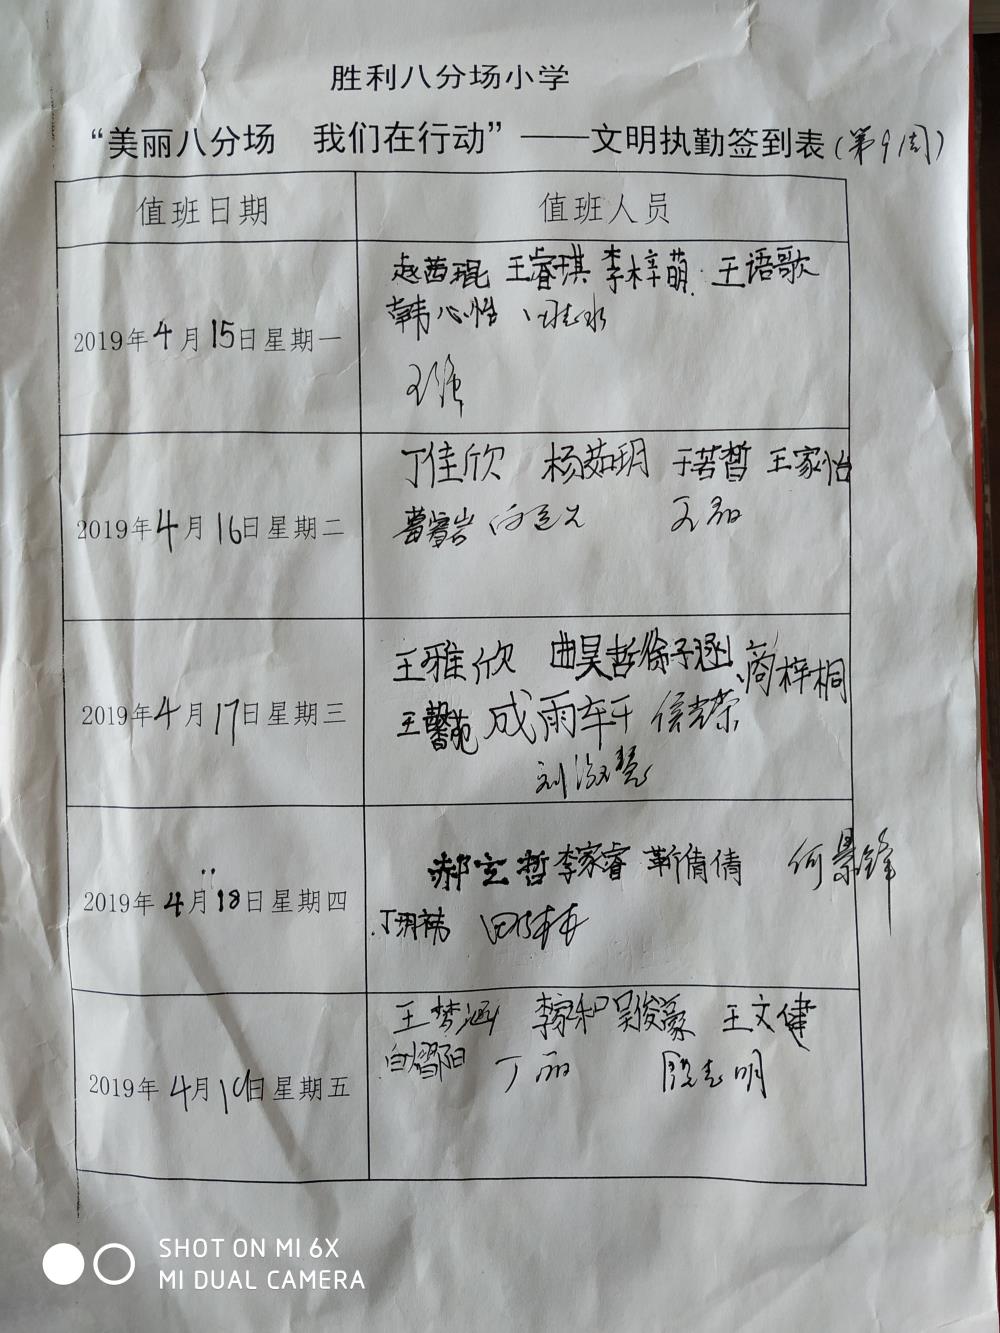 胜利八分场小学
“美丽八分场 我们在行动”——文明执勤签到表(第9周)
值班日期 值班人员
赵茜琨 王睿琪 李梓萌 王语歌
韩心怡
2019年4月15日星期一
王强
丁佳欣 杨茹玥 于若晳 王家怡
2019年4月16日星期二
王雅欣 曲昊哲 徐子涵 商梓桐
2019年4月17日星期三
王馨苑 成雨轩 侯志荣
刘淑慧
郝玄哲 李家睿 靳倩倩 何景锋
2019年4月18日星期四
丁玥祎
王梦涵 李家和 吴俊豪 王文健
丁丽
2019年4月19日星期五
SHOT ON MI 6X
MI DUAL CAMERA